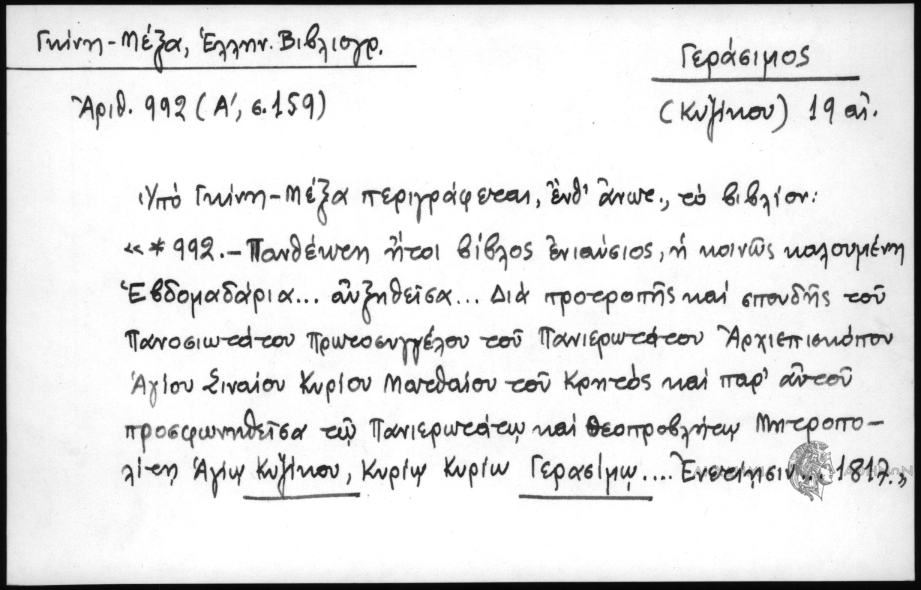 Γκίνη-Μέξα, Ἑλλην. Βιβλιογρ.
Γεράσιμος
Ἀριθ. 992 (Α', σ. 159)
(Κυζίκου) 19 αἰ.
Ὑπό Γκίνη-Μέξα περιγράφεται, ἔνθ' ἄνωτ., τό βιβλίον:
«*992.- Πανθέκτη ἤτοι βίβλος ἐνιαύσιος, ἡ κοινῶς καλουμένη
Ἑβδομαδάρια... αὐξηθεῖσα... Διά προτροπῆς καί σπουδῆς τοῦ
Πανοσιωτάτου Πρωτοσυγγέλου τοῦ Πανιερωτάτου Ἀρχιεπισκόπου
Ἁγίου Σιναίου Κυρίου Ματθαίου τοῦ Κρητός καί παρ' αὐτοῦ
προσφωνηθεῖσα τῷ Πανιερωτάτῳ καί θεοπροβλήτῳ Μητροπο-
λίτῃ Ἁγίῳ Κυζίκου, Κυρίῳ Κυρίῳ Γερασίμῳ.... Ἐνετίησιν... 1817.»